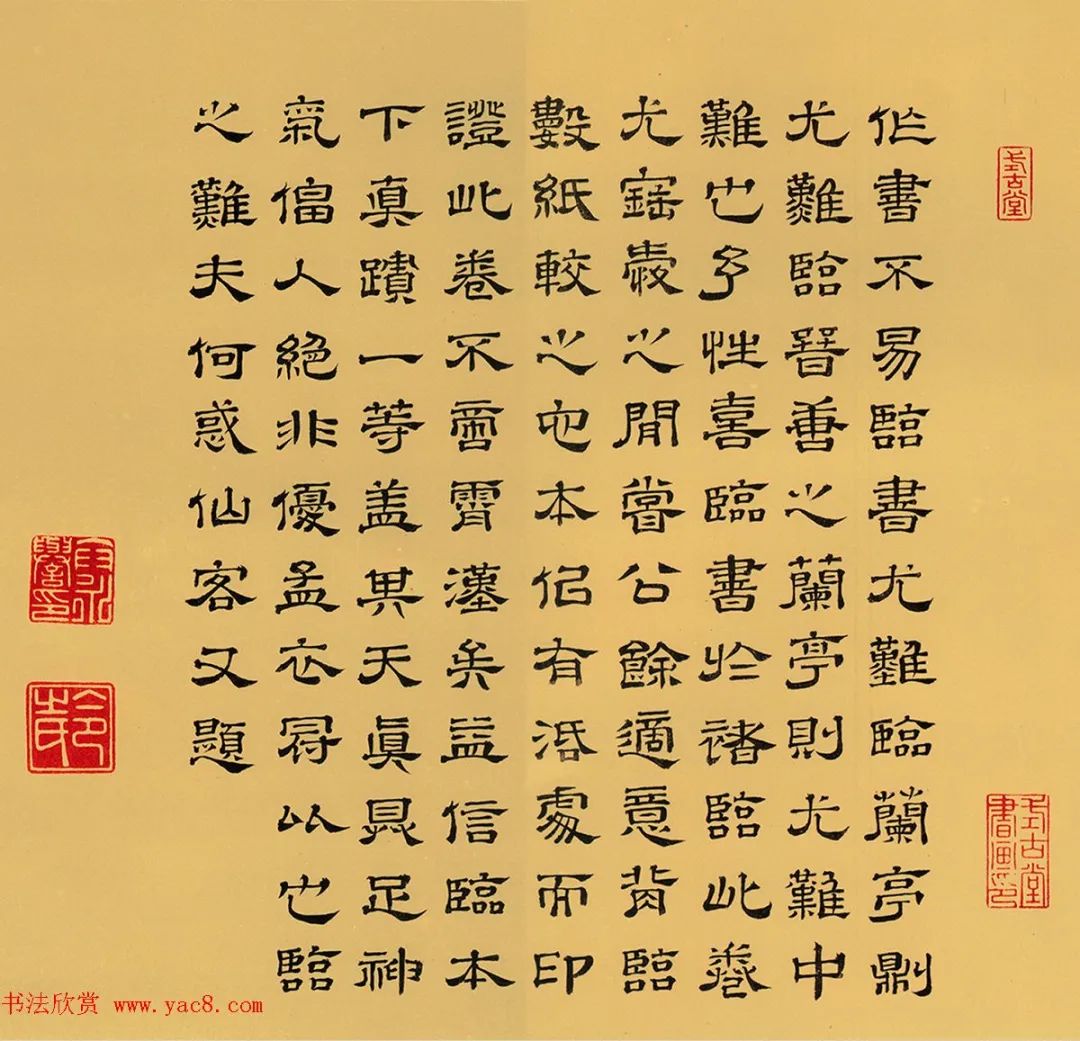 作書不易臨書尤難臨蘭亭則
尤難臨晉善之蘭亭則尤難中
難也予性喜臨書於褚臨此卷
尤寶愛之閒嘗公餘適意背臨
數紙較之他本似有活處而印
證此卷不啻霄漢矣益信臨本
下真蹟一等蓋其天真具足神
氣偪人絕非優孟衣冠比也臨
之難夫何惑仙客又題
式古堂
式古堂書畫印
卞永譽印
书法欣赏 www.yac8.com